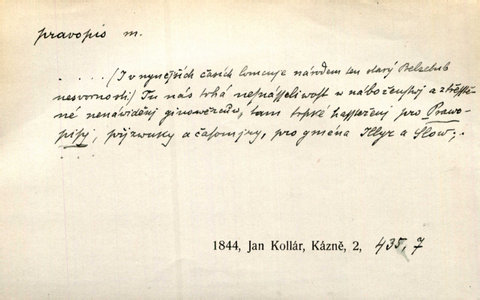 pravopis m.
. . . . (I v nynějších časích lomcuje národem ten starý Belzebub
nesvornosti) Tu nás trhá nesnášeliwost w náboženstwj a
né nenáwiděnj ginowěrců, tam trpké hašteřenj pro Prawo-
pisy, přjzwuky a časomjry, pro gména Illyr a Slow;.
. . . .
1844, Jan Kollár, Kázně, 2, 435, 7